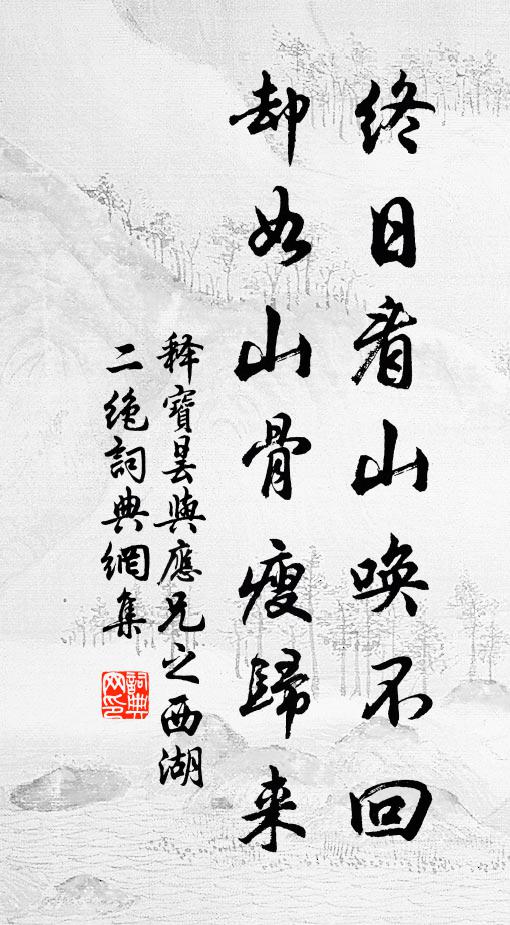 終日看山喚不回
却如山骨瘦歸来
释寶曇與應兄之西湖
二绝詞典網集
詞典
网印